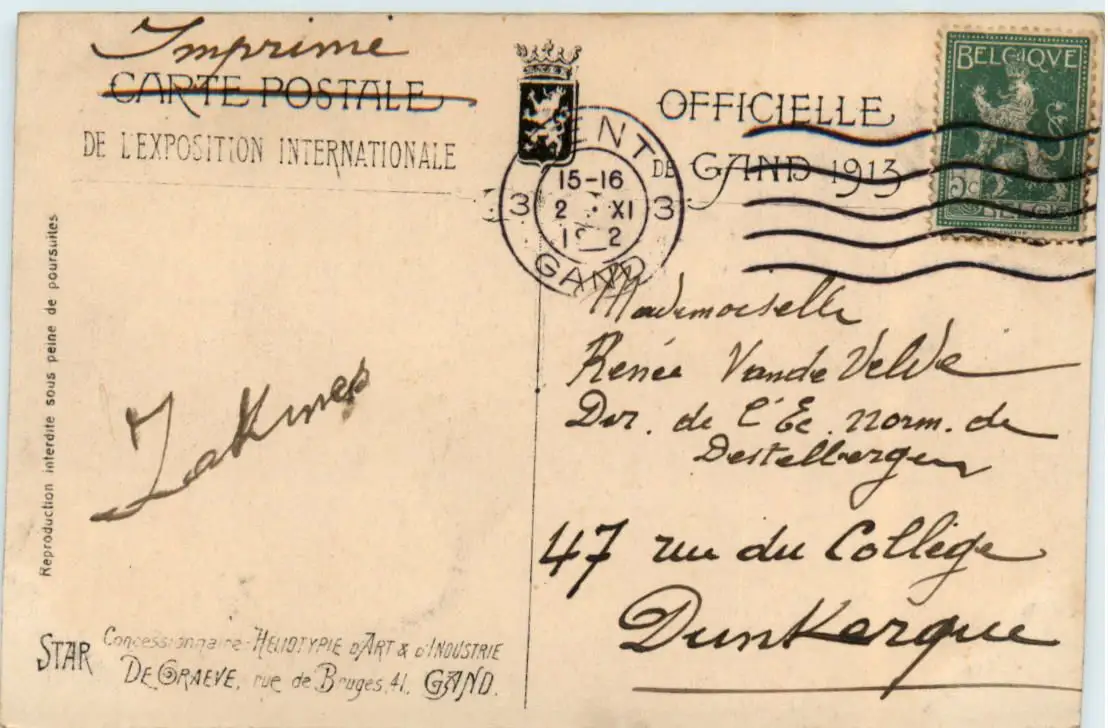 Imprimé
CARTE POSTALE
OFFICIELLE
DE L'EXPOSITION INTERNATIONALE
DE GAND 1913
BELGIQVE
5c
BELGIE
GENT
15-16
3 2 XI 3
GAND
Reproduction interdite sous peine de poursuites
Mademoiselle
Renée VandeVelde
Dir. de l'Ec. norm. de
Destelbergen
47 rue du Collège
Dunkerque
STAR Concessionnaire-HELIOTYPIE D'ART & D'INDUSTRIE
DE GRAEVE, rue de Bruges, 41, GAND.